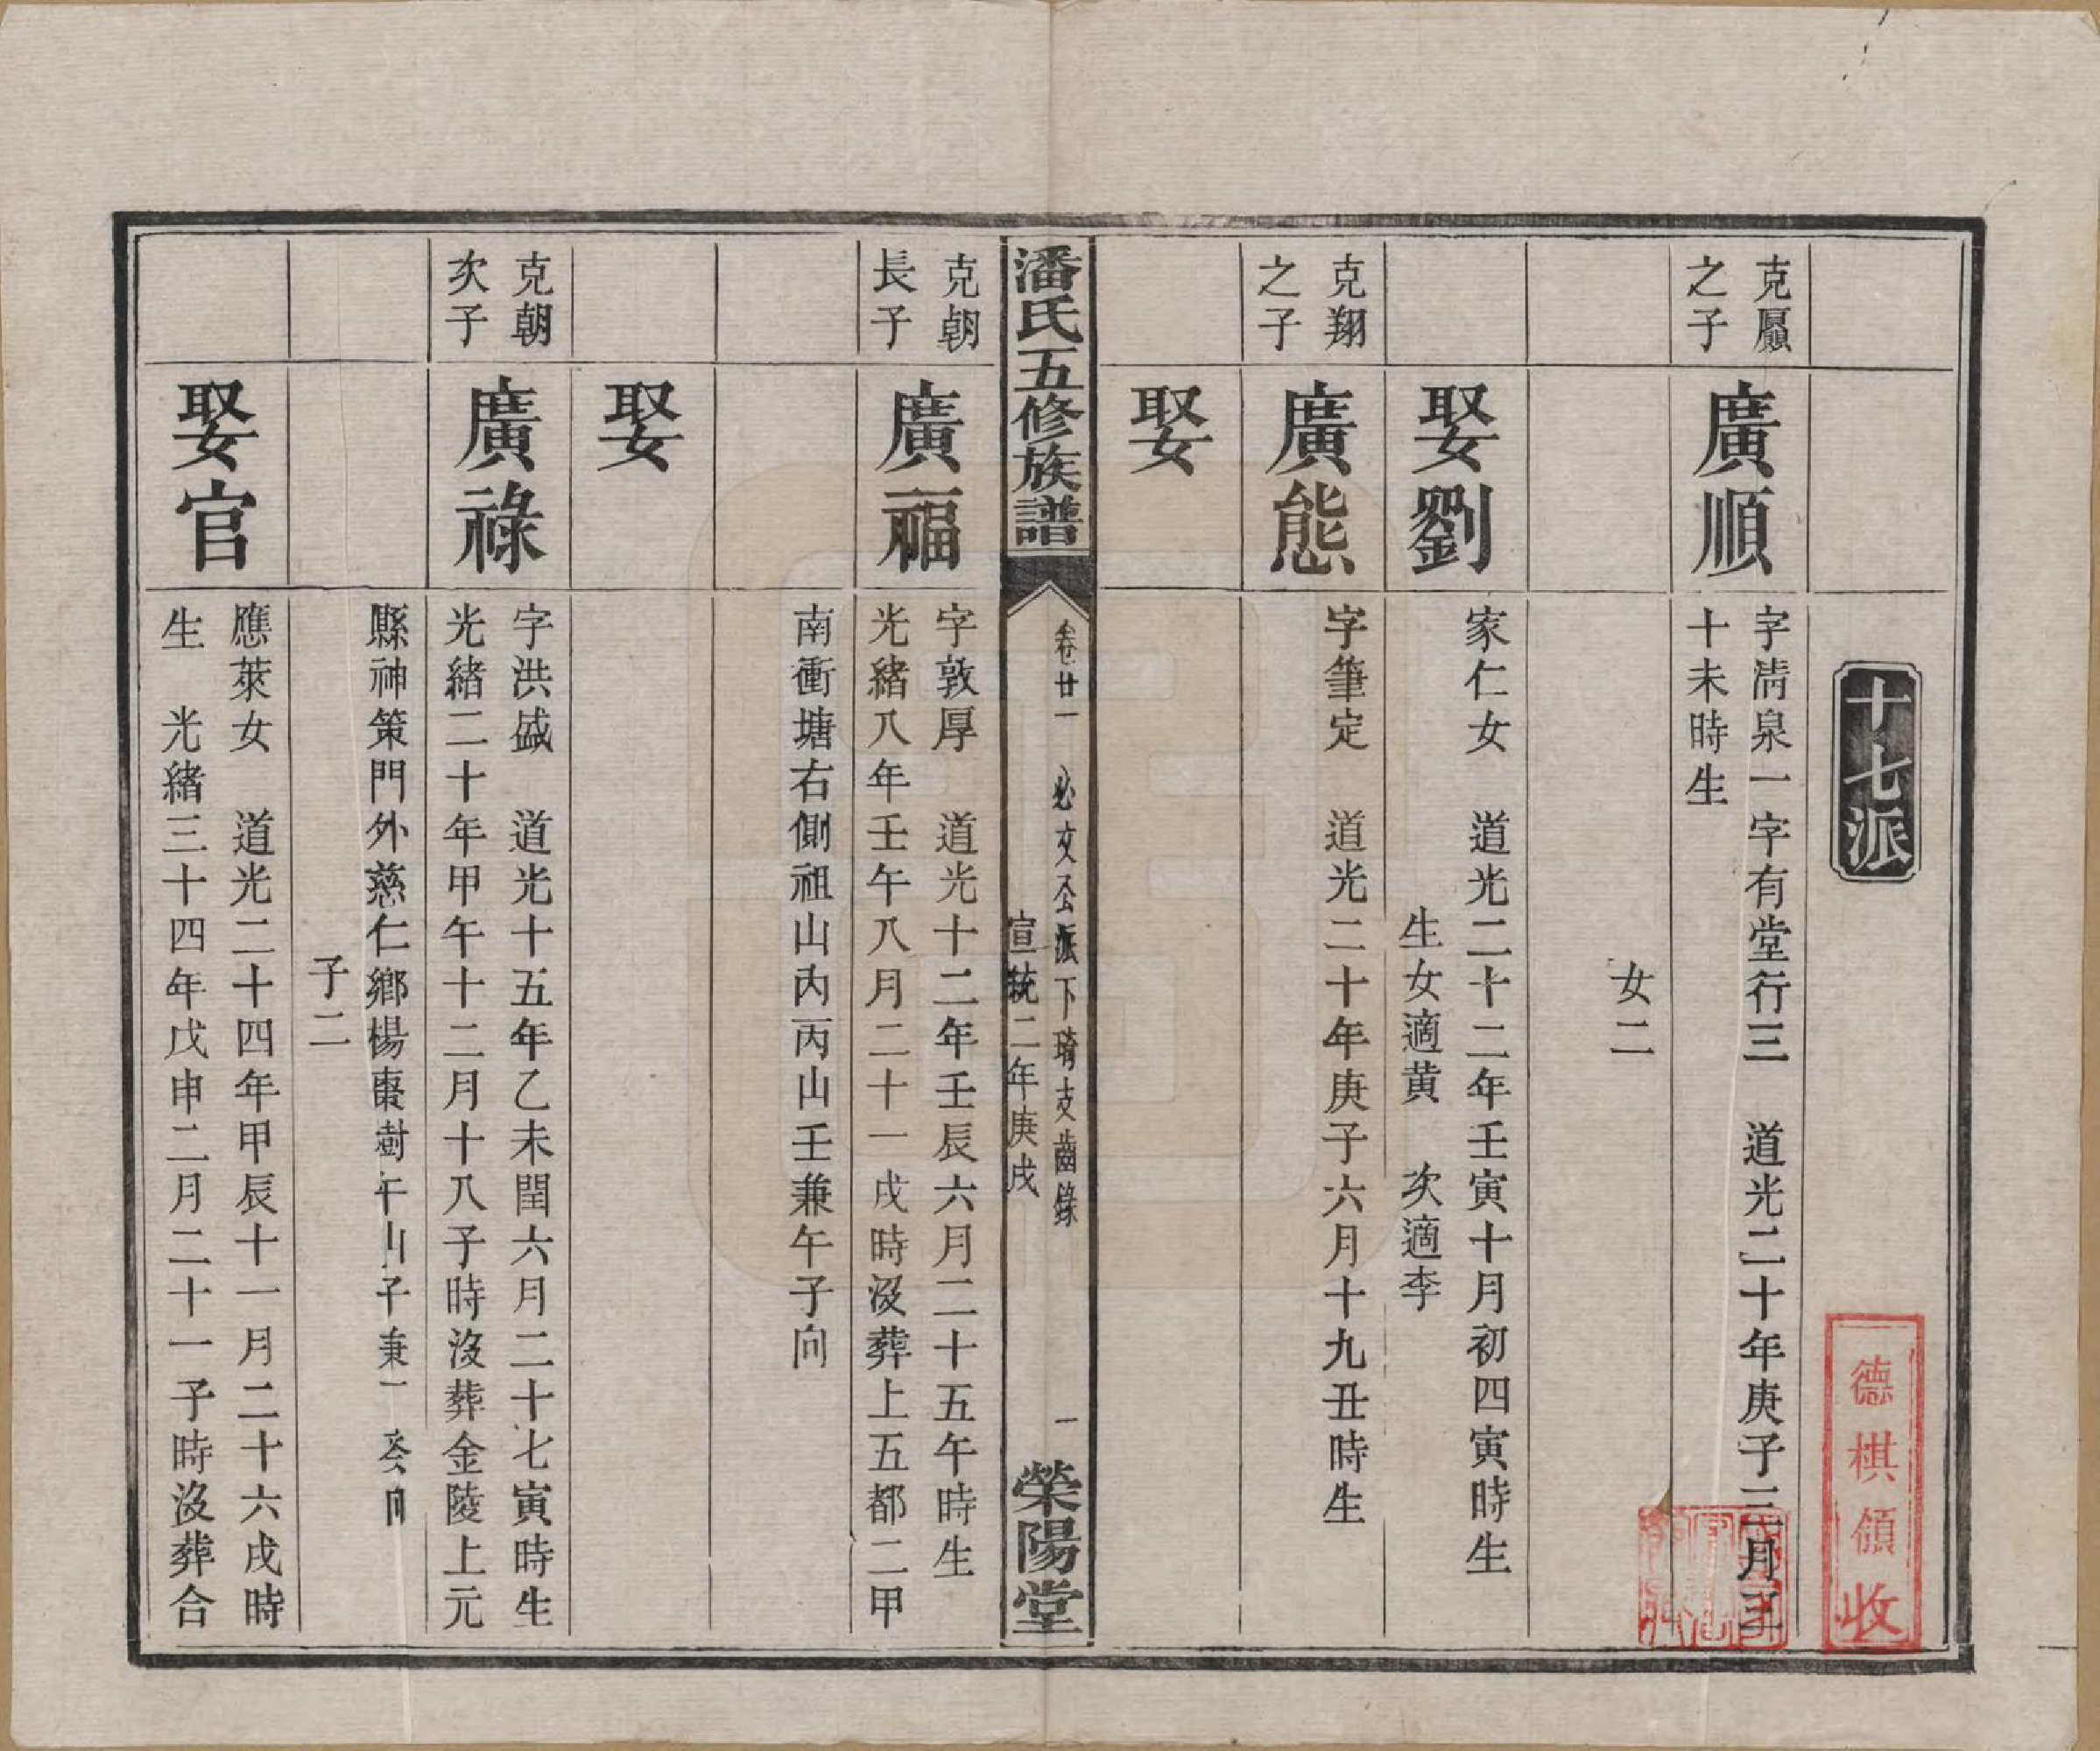 十七派
德棋領收
克㞞之子
廣順
字清泉一字有堂行三　道光二十年庚子二月三
十未時生
女二
娶劉
家仁女　道光二十二年壬寅十月初四寅時生
生女適黄　次適李
克翔之子
廣態
字筆定　道光二十年庚子六月十九丑時生
娶
潘氏五修族譜
卷廿一　必文公派下琦支齒錄
宣統二年庚戌
一
榮陽堂
克朝長子
廣福
字敦厚　道光十二年壬辰六月二十五午時生
光緒八年壬午八月二十一戌時沒葬上五都二甲
南衝塘右側祖山內丙山壬兼午子向
娶
克朝次子
廣祿
字洪盛　道光十五年乙未閏六月二十七寅時生
光緒二十年甲午十二月十八子時沒葬金陵上元
縣神策門外慈仁鄉楊棗樹午山子兼丁癸向
子二
娶官
應萊女　道光二十四年甲辰十一月二十六戌時
生　光緒三十四年戊申二月二十一子時沒葬合